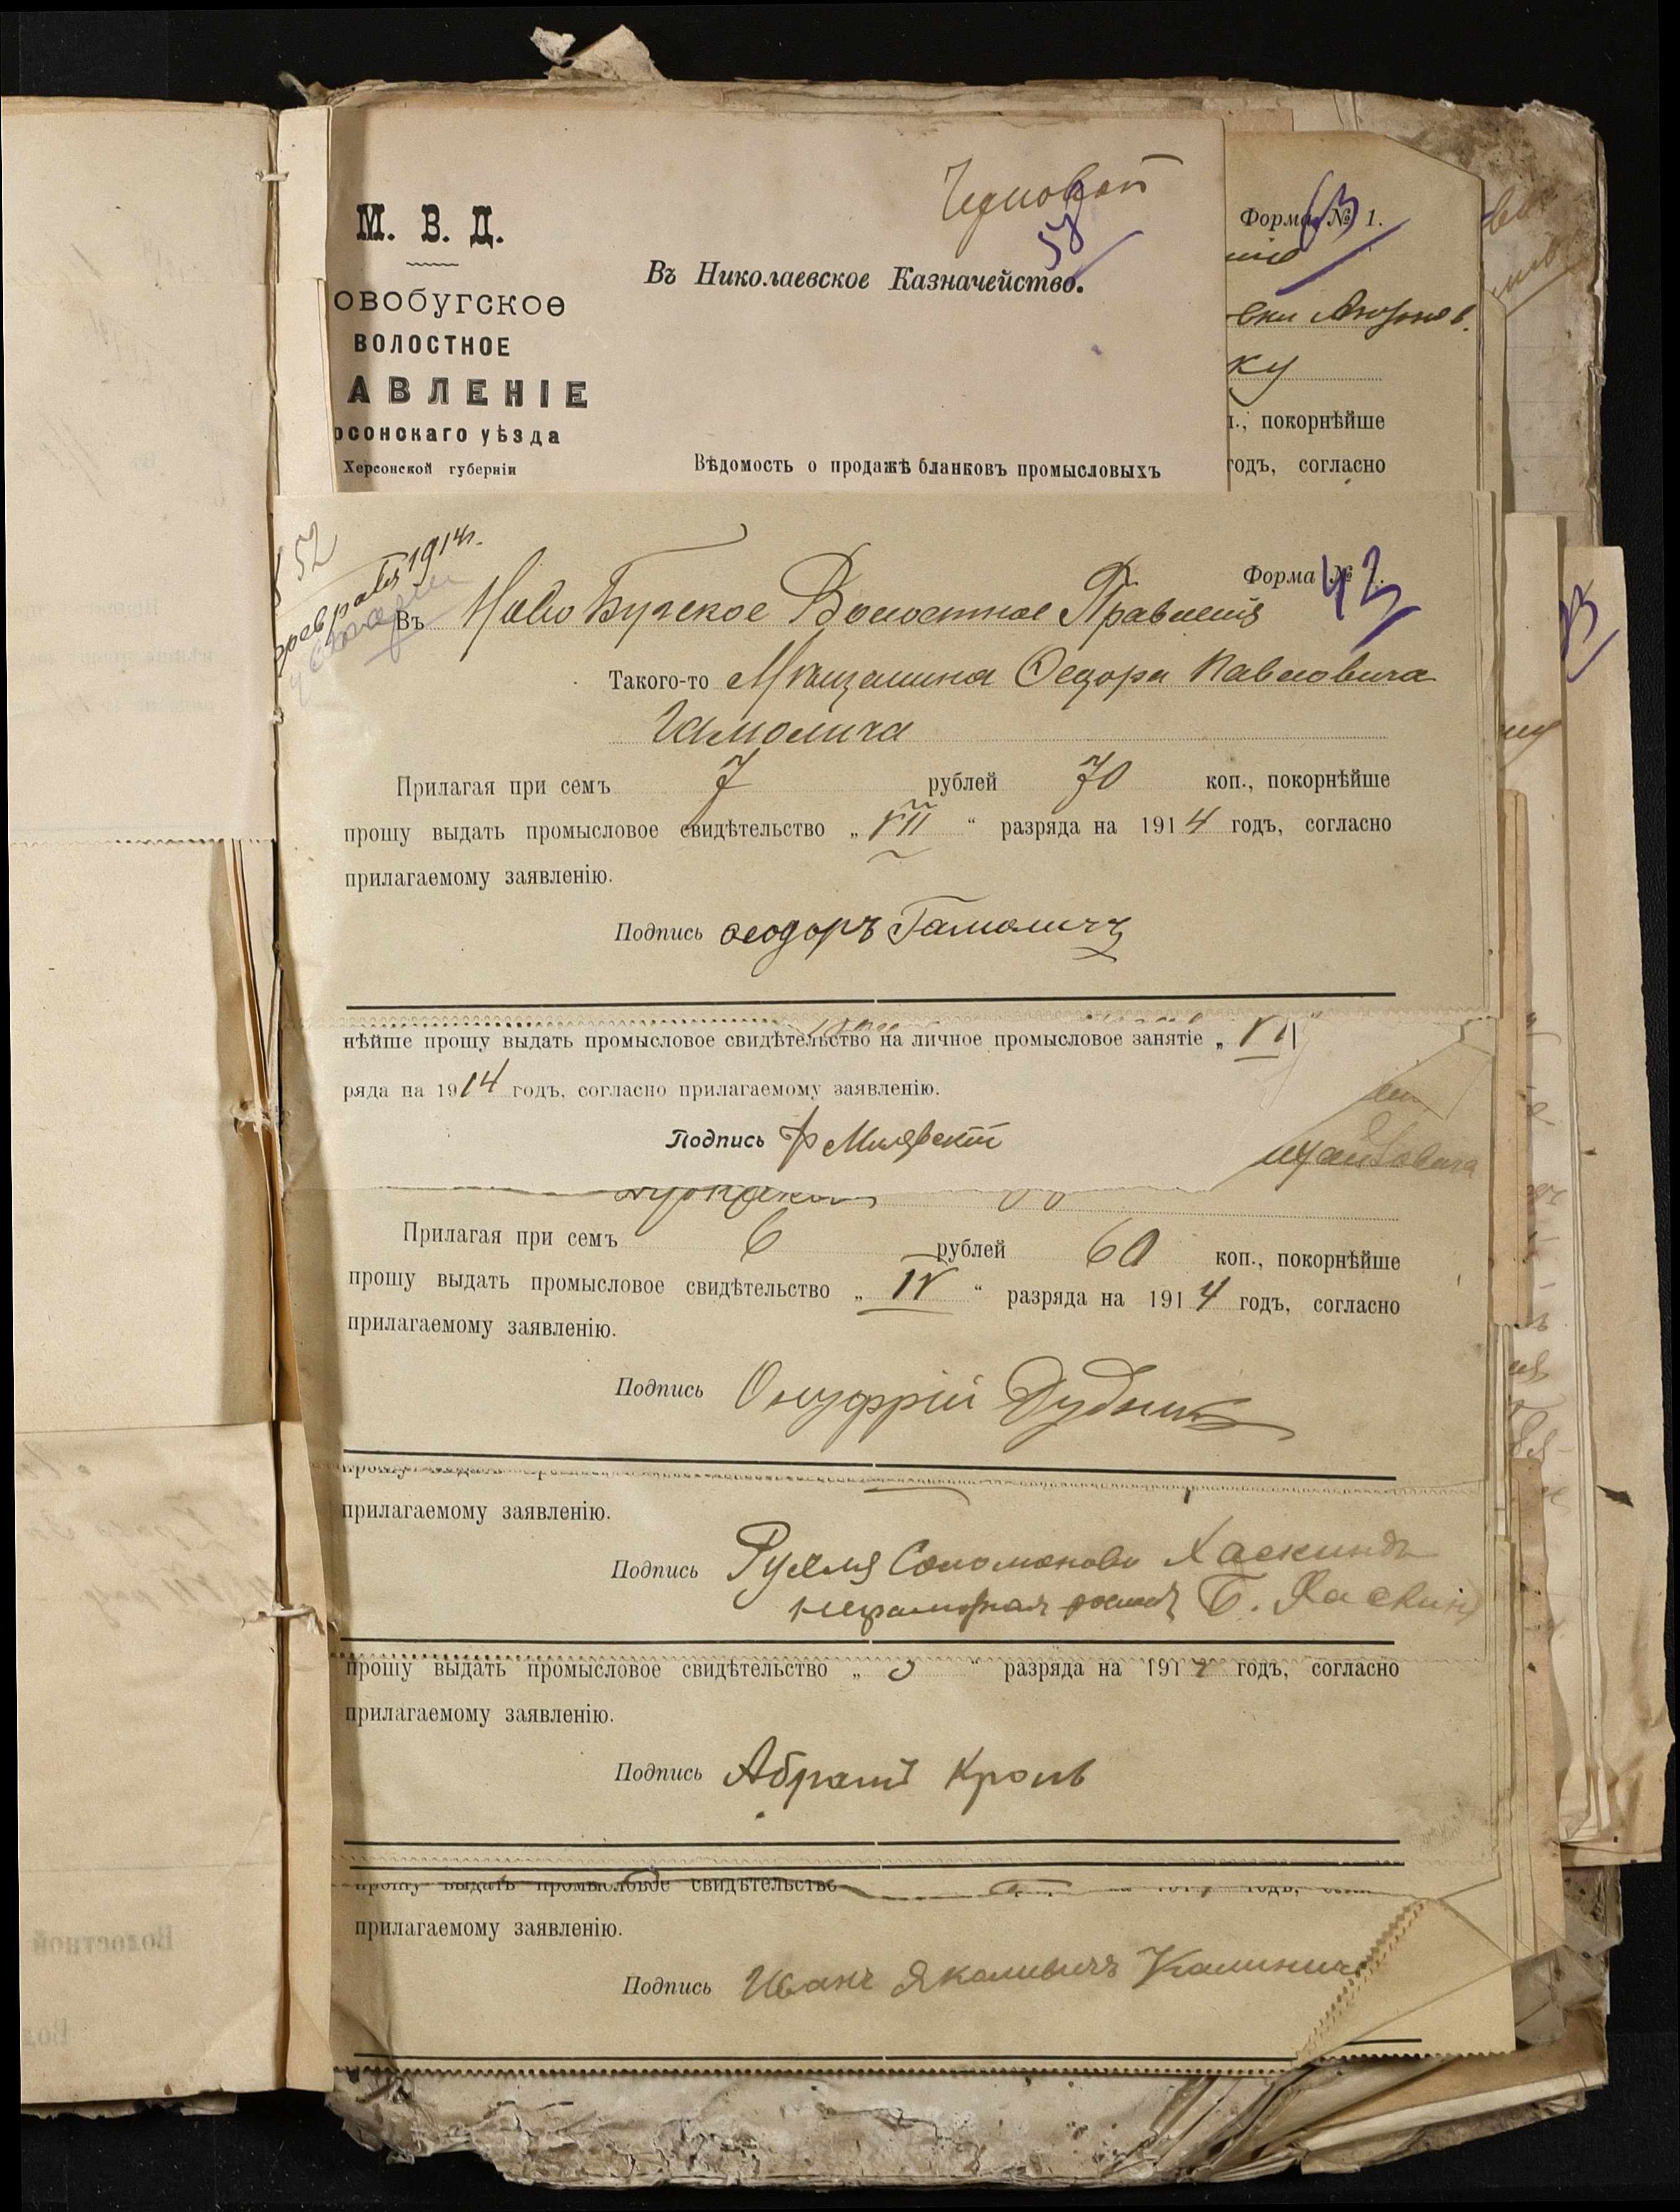 М. В. Д.
овобугское
ВОЛОСТНОЕ
АВЛЕНІЕ
рсонскаго уѣзда
Херсонской губерніи
58
Въ Николаевское Казначейство.
Вѣдомость о продажѣ бланковъ промысловыхъ
Форма № 1.
63
ку
покорнѣйше
годъ, согласно
52
февраля 1914 г.
Форма №
42
Въ Ново Бугское Волостное Правленіе
Такого-то Мѣщанина Федора Павловича
Гамолича
Прилагая при семъ 7 рублей 70 коп., покорнѣйше
прошу выдать промысловое свидѣтельство „ VII “ разряда на 1914 годъ, согласно
прилагаемому заявленію.
Подпись Феодоръ Гамоличъ
нѣйше прошу выдать промысловое свидѣтельство на личное промысловое занятіе „ VII
ряда на 1914 годъ, согласно прилагаемому заявленію.
Подпись
Прилагая при семъ 6 рублей 60 коп., покорнѣйше
прошу выдать промысловое свидѣтельство „ IV “ разряда на 1914 годъ, согласно
прилагаемому заявленію.
Подпись Онуфрій Дудник
прилагаемому заявленію.
Подпись Рухля Соломонова Хаскиндъ
неграмотная Б. Хаскинд
прошу выдать промысловое свидѣтельство „ “ разряда на 191 годъ, согласно
прилагаемому заявленію.
Подпись Абрамъ Кроль
прошу выдать промысловое свидѣтельство
прилагаемому заявленію.
Подпись Иванъ Калинич